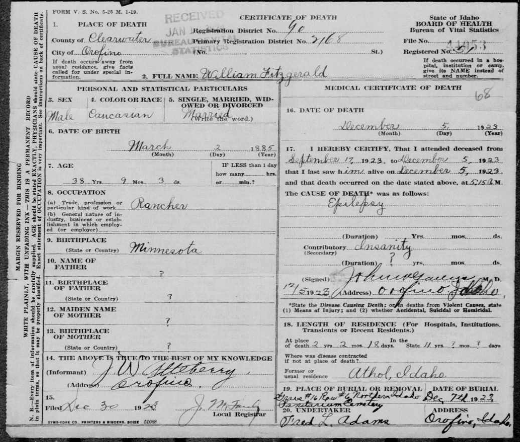 FORM V. S. No. 5-25 M. 1-19.
RECEIVED
JAN
BUREAU
STATISTICS
CERTIFICATE OF DEATH
State of Idaho
BOARD OF HEALTH
Bureau of Vital Statistics
1. PLACE OF DEATH
County of Clearwater
City of Orofino
Registration District No. 90
Primary Registration District No. 2168
Registered No.
If death occurred away from usual residence, give facts called for under special information.
If death occurred in a hospital, institution or camp, give its NAME instead of street and number.
2. FULL NAME William Fitzgerald
PERSONAL AND STATISTICAL PARTICULARS
3. SEX
Male
4. COLOR OR RACE
Caucasian
5. SINGLE, MARRIED, WIDOWED OR DIVORCED
Married
(Write the word.)
6. DATE OF BIRTH
March 2 1885
(Month) (Day) (Year)
7. AGE
38 Yrs. 9 Mos. 3 ds.
IF LESS than 1 day
how many hrs.
or min?
8. OCCUPATION
(a) Trade, profession or particular kind of work
Rancher
(b) General nature of industry, business or establishment in which employed (or employer)
9. BIRTHPLACE
(State or Country)
Minnesota
10. NAME OF FATHER
?
11. BIRTHPLACE OF FATHER
(State or Country)
?
12. MAIDEN NAME OF MOTHER
?
13. BIRTHPLACE OF MOTHER
(State or Country)
?
14. THE ABOVE IS TRUE TO THE BEST OF MY KNOWLEDGE
(Informant) J. W. Atteberry
(Address) Orofino
15.
Filed Dec 30 1923
Local Registrar
MEDICAL CERTIFICATE OF DEATH
68
16. DATE OF DEATH
December 5 1923
(Month) (Day) (Year)
17. I HEREBY CERTIFY, That I attended deceased from
September 17 1923, to December 5, 1923
that I last saw him alive on December 5, 1923
and that death occurred on the date stated above, at 5:15 P M.
The CAUSE OF DEATH* was as follows:
Epilepsy
(Duration) ? yrs. mos. ds.
Contributory Insanity
(Secondary)
(Duration) ? yrs. mos. ds.
(Signed) M. D.
12/5 1923 (Address) Orofino Idaho
*State the Disease Causing Death; or in deaths from Violent Causes, state (1) Means of Injury; and (2) whether Accidental, Suicidal or Homicidal.
18. LENGTH OF RESIDENCE (For Hospitals, Institutions, Transients or Recent Residents.)
At place of death 2 yrs. 2 mos. 18 days.
In the State 11 yrs. ? mos. ? days
Where was disease contracted if not at place of death? ?
Former or usual residence Athol, Idaho.
19. PLACE OF BURIAL OR REMOVAL
Row #6 Northern Idaho Sanitarium Cemetery
DATE OF BURIAL
Dec 7th, 1923
20. UNDERTAKER
Fred L. Adams
ADDRESS
Orofino, Idaho.
MARGIN RESERVED FOR BINDING
WRITE PLAINLY, WITH UNFADING INK—THIS IS A PERMANENT RECORD